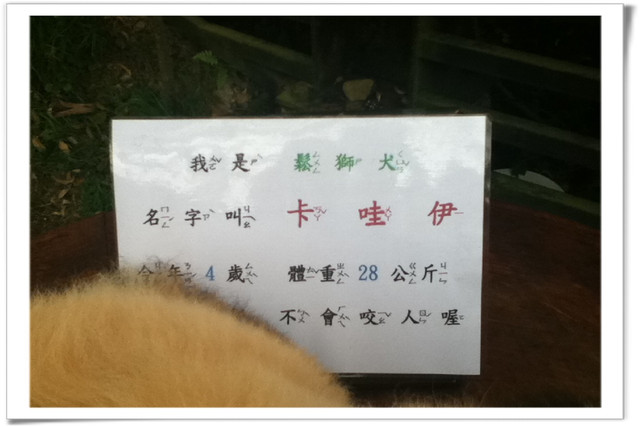 我是 鬆獅犬
名字叫 卡哇伊
今年4歲 體重28公斤
不會咬人喔